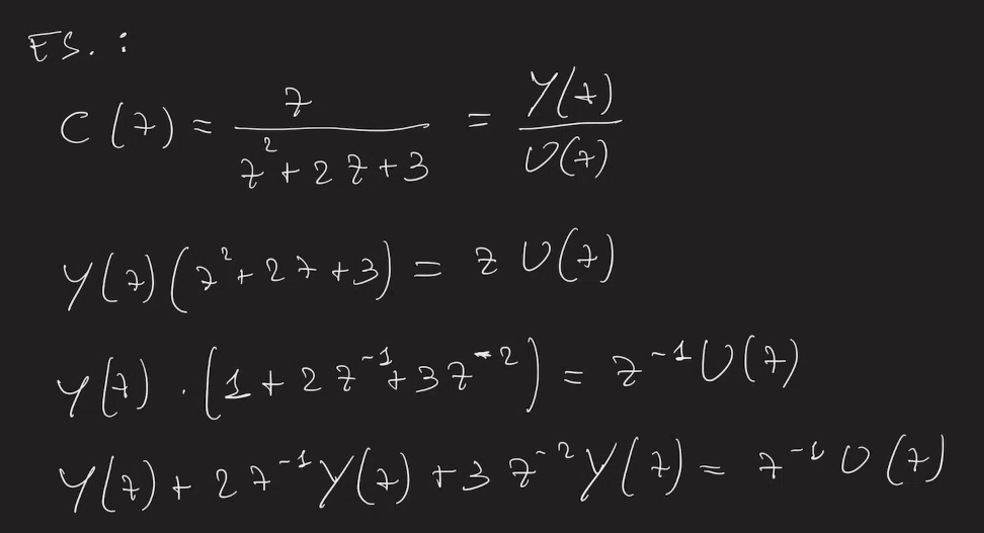 ES. :
C(z) = z / (z² + 2z + 3) = Y(z) / U(z)
Y(z)(z² + 2z + 3) = z U(z)
Y(z) · (1 + 2z⁻¹ + 3z⁻²) = z⁻¹ U(z)
Y(z) + 2z⁻¹ Y(z) + 3z⁻² Y(z) = z⁻¹ U(z)